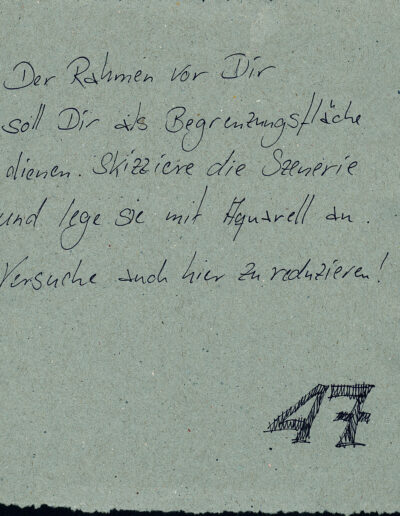 Der Rahmen vor Dir
soll Dir als Begrenzungsfläche
dienen. Skizziere die Szenerie
und lege sie mit Aquarell an.
Versuche auch hier zu reduzieren!
17